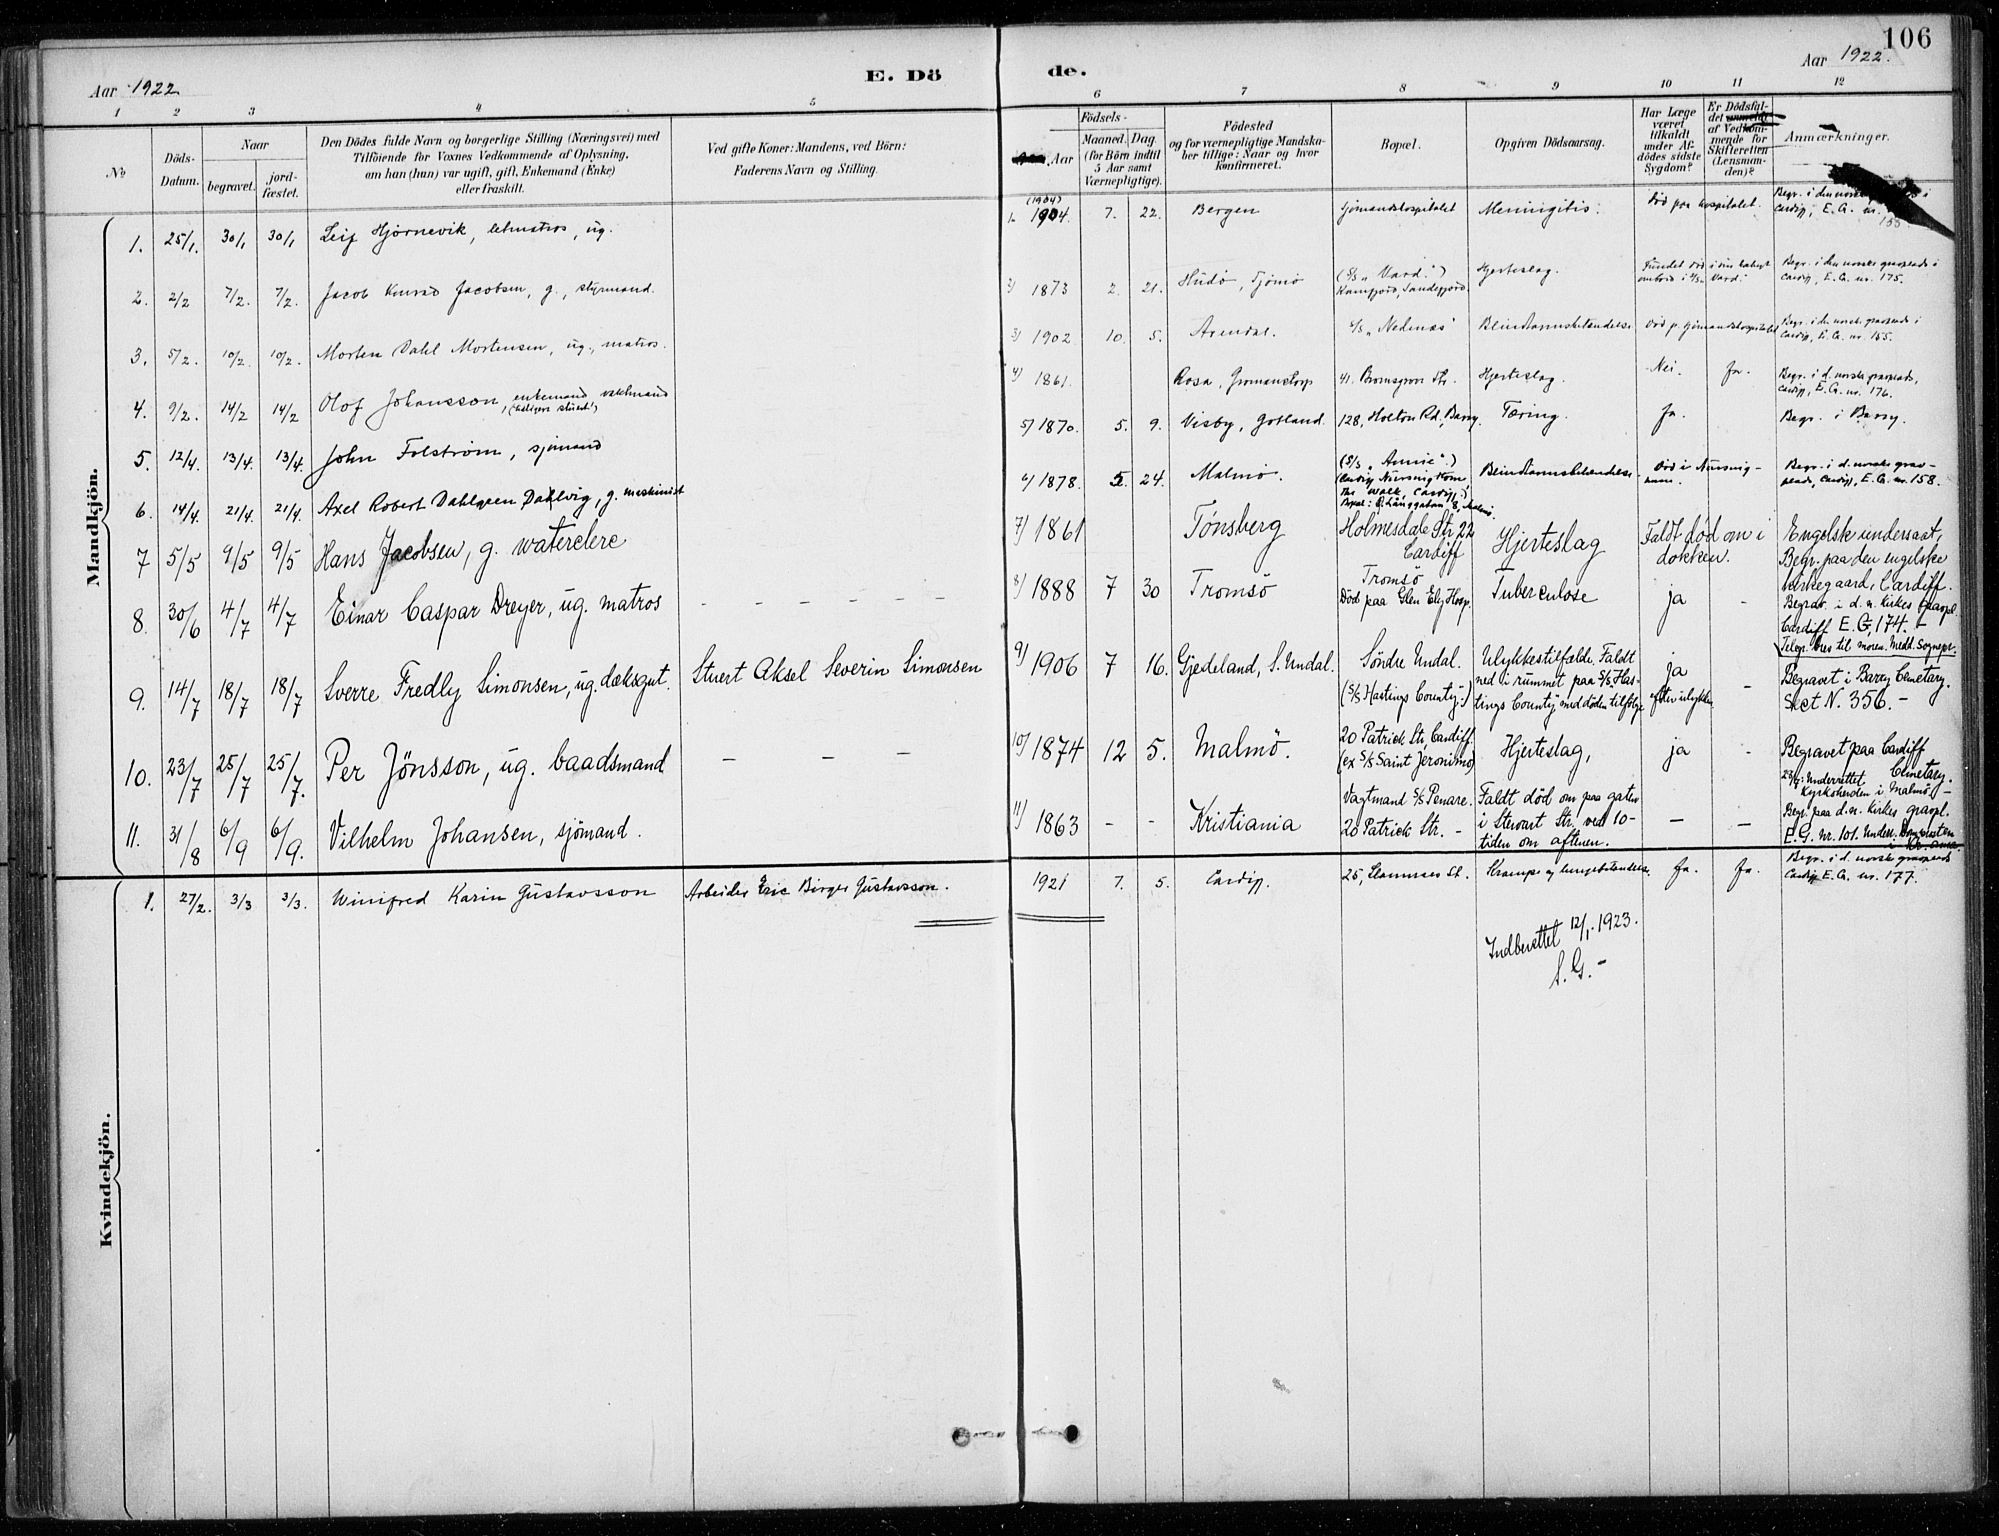 106
Aar 1922
E. Dö
de.
Aar 1922.
1 2 3 4 5 6 7 8 9 10 11 12
No
Döds-Datum.
Naar
begravet.
jord-fæstet.
Den Dödes fulde Navn og borgerlige Stilling (Næringsvei) med
Tilföiende for Voxnes Vedkommende af Oplysning,
om han (hun) var ugift, gift, Enkemand (Enke)
eller fraskilt.
Ved gifte Koner: Mandens, ved Börn:
Faderens Navn og Stilling.
Födsels-
Aar
Maaned. Dag.
(for Börn indtil
5 Aar samt
Værnepligtige).
Födested
og for værnepligtige Mandska-
ber tillige: Naar og hvor
konfirmeret.
Bopæl.
Opgiven Dödsaarsag.
Har Læge
været
tilkaldt
under Af-
dödes sidste
Sygdom?
Er Dödsfal-
det anmeldt
af Vedkom-
mende for
Skifteretten
(Lensman-
den)?
Anmærkninger.
Mandkjön.
1. 25/1. 30/1 30/1 Leif Hjørnevik, letmatros, ug.
(1904)
1904. 7. 22. Bergen Sjömandshospitalet Meningitis. Död paa hospitalet. Begr. i den norske i
Cardiff, E. G. nr. 155
2. 2/2 7/2. 7/2. Jacob Konrad Jacobsen, g., styrmand.
2) 1873 2. 21. Hudö, Tjömö (S/S "Vard".) Hjerteslag. Fundet död i sin lugar Begr. i den norske gravplads i
Kamfjord, Sandefjord. ombord i S/S Vard. Cardiff, E. G. nr. 175.
3. 5/2. 10/2. 10/2. Morten Dahl Mortensen, ug., matros.
3) 1902. 10. 5. Arendal. S/S "Nedenæs" Blindtarmsbetændelse Död p. sjömandshospitalet Begr. i d. norske gravplads i
Cardiff, E. G. nr. 155.
4. 9/2. 14/2 14/2 Olof Johansson, enkemand, vaktmand
(tidligere stuert)
4) 1861. Rosa, 41. Bromsgrove Str. Hjerteslag. Nei. Ja. Begr. i d. norske gravplads,
Cardiff, E. G. nr. 176.
5. 12/4. 13/4. 13/4. John Folström, sjömand
5) 1870. 5. 9. Visby, Gotland. 128, Holton Rd, Barry. Tæring. Ja. Begr. i Barry.
6. 14/4. 21/4. 21/4. Axel Robert Dahlgren Dahlvig, g. maskinist
6) 1878. 5. 24. Malmö. (S/S "Annie".) Blindtarmsbetændelse Död i Nursing- Begr. i d. norske grav-
(Cardiff Nursing Home home. plads, Cardiff, E. G. nr. 158.
The Walk, Cardiff,)
7 5/5 9/5 9/5 Hans Jacobsen, g. waterclerc
7) 1861 Tönsberg Holmesdale Str 22 Hjerteslag Faldt död om i Engelsk undersaat,
Cardiff dokken. Begr. paa den engelske
kirkegaard, Cardiff.
8. 30/6 4/7 4/7 Einar Caspar Dreyer, ug. matros - - - - -
8) 1888 7 30 Tromsö Tromsö Tuberculose ja - Begrav. i d. n. kirkes gravpl.
Död paa Glen Ely Hosp. Cardiff E. G, 174. -
Telegr. brev til moren. Medd. Sognepr.
9. 14/7 18/7 18/7 Sverre Fredly Simonsen, ug. dæksgut. Stuert Aksel Severin Simonsen
9) 1906 7 16. Gjedeland, S. Undal. Söndre Undal. Ulykkestilfælde. Faldt ja - Begravet i Barry Cemetary.
(S/S Hastings County.) ned i rummet paa S/S Has- efter ulykken Sect N. 356. -
tings County med döden tilfölge
10. 23/7 25/7 25/7. Per Jönsson, ug. baadsmand - - -
10) 1874 12 5. Malmö. 20 Patrick Str, Cardiff Hjerteslag, ja - Begravet paa Cardiff
(ex S/S Saint Jeronimo) Cemetary.
23/7: Underrettet
Kyrkoherden i Malmö. -
11. 31/8 6/9 6/9. Vilhelm Johansen, sjömand.
11) 1863 - - Kristiania Vagtmand S/S Penare. Faldt död om paa gaten - - Begr. paa d. n. kirkes gravpl.
20 Patrick Str. - i Stewart Str. ved 10- E. G. nr. 101. Underr. Domprosten
tiden om aftenen. i Kr.ania
Kvindekjön.
1. 27/2. 3/3 3/3. Winifred Karin Gustavsson Arbeider Eric Birger Gustavsson.
1921 7. 5. Cardiff. 25, Krampe og lungebetændelse Ja. Ja. Begr. i d. norske gravplads
Cardiff E. G. nr. 177.
Indberettet 12/1. 1923.
S. G. -